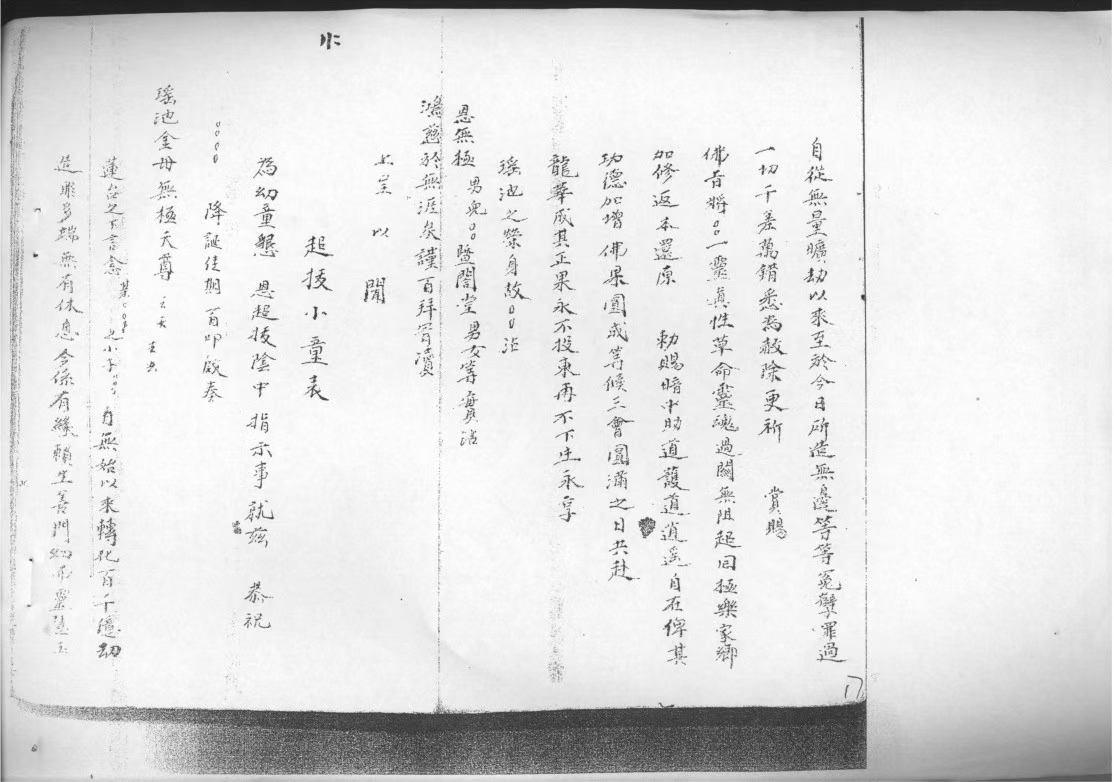 自從無量曠劫以來至於今日所造無邊等等冤孽罪過
一切千差萬錯悉為赦除更祈 賞賜
佛旨將〇〇一靈真性草命靈魂過關無阻起回極樂家鄉
加修返本還原 勅賜暗中助道護道逍遥自在俾其
功德加增佛果圓成等候三會圓滿之日共赴
龍華成其正果永不投東再不下生永享
瑤池之榮身故〇〇沾
恩無極 男兒〇〇暨閤堂男女等實沾
鴻慈於無涯矣謹百拜冒瀆
上呈以 聞
超拔小童表
為幼童懇 恩超拔陰中指示事就兹 恭祝
〇〇〇〇 降誕佳期百叩啟奏
瑤池金母無極天尊
蓮台之下言念 之小子〇〇 自無始以來轉化百千億劫
造業多端無有休息今係有緣賴生善門幼而靈慧
17